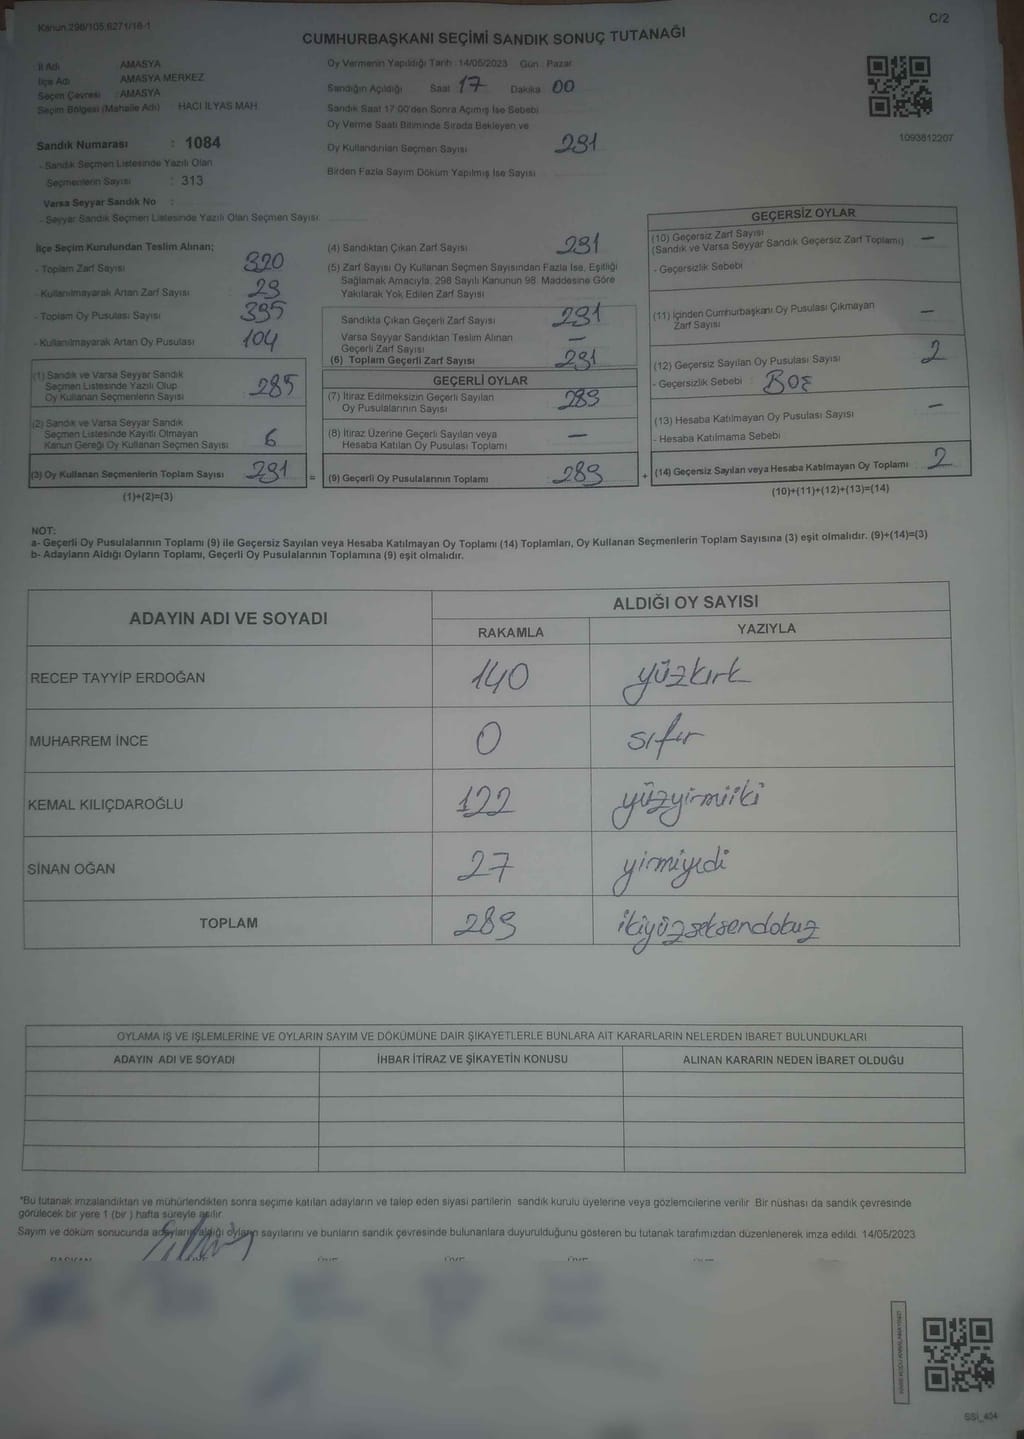 Kanun.298/105.6271/16-1
C/2
CUMHURBAŞKANI SEÇİMİ SANDIK SONUÇ TUTANAĞI
İl Adı AMASYA
İlçe Adı AMASYA MERKEZ
Seçim Çevresi : AMASYA
Seçim Bölgesi (Mahalle Adı) HACI İLYAS MAH.
Sandık Numarası : 1084
- Sandık Seçmen Listesinde Yazılı Olan
Seçmenlerin Sayısı : 313
Varsa Seyyar Sandık No :
- Seyyar Sandık Seçmen Listesinde Yazılı Olan Seçmen Sayısı:
Oy Vermenin Yapıldığı Tarih : 14/05/2023 Gün : Pazar
Sandığın Açıldığı Saat 17 Dakika 00
Sandık Saat 17:00'den Sonra Açımış İse Sebebi
Oy Verme Saati Bitiminde Sırada Bekleyen ve
Oy Kullandırılan Seçmen Sayısı 291
Birden Fazla Sayım Döküm Yapılmış İse Sayısı
1093812207
İlçe Seçim Kurulundan Teslim Alınan;
- Toplam Zarf Sayısı 320
- Kullanılmayarak Artan Zarf Sayısı 29
- Toplam Oy Pusulası Sayısı 395
- Kullanılmayarak Artan Oy Pusulası 104
(1) Sandık ve Varsa Seyyar Sandık
Seçmen Listesinde Yazılı Olup
Oy Kullanan Seçmenlerin Sayısı 285
(2) Sandık ve Varsa Seyyar Sandık
Seçmen Listesinde Kayıtlı Olmayan
Kanun Gereği Oy Kullanan Seçmen Sayısı 6
(3) Oy Kullanan Seçmenlerin Toplam Sayısı 291 =
(1)+(2)=(3)
(4) Sandıktan Çıkan Zarf Sayısı 291
(5) Zarf Sayısı Oy Kullanan Seçmen Sayısından Fazla İse, Eşitliği
Sağlamak Amacıyla, 298 Sayılı Kanunun 98. Maddesine Göre
Yakılarak Yok Edilen Zarf Sayısı
Sandıkta Çıkan Geçerli Zarf Sayısı 291
Varsa Seyyar Sandıktan Teslim Alınan
Geçerli Zarf Sayısı —
(6) Toplam Geçerli Zarf Sayısı 291
GEÇERLİ OYLAR
(7) İtiraz Edilmeksizin Geçerli Sayılan
Oy Pusulalarının Sayısı 289
(8) İtiraz Üzerine Geçerli Sayılan veya
Hesaba Katılan Oy Pusulası Toplamı —
(9) Geçerli Oy Pusulalarının Toplamı 289 +
GEÇERSİZ OYLAR
(10) Geçersiz Zarf Sayısı —
(Sandık ve Varsa Seyyar Sandık Geçersiz Zarf Toplamı)
- Geçersizlik Sebebi
(11) İçinden Cumhurbaşkanı Oy Pusulası Çıkmayan
Zarf Sayısı —
(12) Geçersiz Sayılan Oy Pusulası Sayısı 2
- Geçersizlik Sebebi : BOŞ
(13) Hesaba Katılmayan Oy Pusulası Sayısı —
- Hesaba Katılmama Sebebi
(14) Geçersiz Sayılan veya Hesaba Katılmayan Oy Toplamı 2
(10)+(11)+(12)+(13)=(14)
NOT:
a- Geçerli Oy Pusulalarının Toplamı (9) ile Geçersiz Sayılan veya Hesaba Katılmayan Oy Toplamı (14) Toplamları, Oy Kullanan Seçmenlerin Toplam Sayısına (3) eşit olmalıdır. (9)+(14)=(3)
b- Adayların Aldığı Oyların Toplamı, Geçerli Oy Pusulalarının Toplamına (9) eşit olmalıdır.
ADAYIN ADI VE SOYADI ALDIĞI OY SAYISI
RAKAMLA YAZIYLA
RECEP TAYYİP ERDOĞAN 140 yüzkırk
MUHARREM İNCE 0 sıfır
KEMAL KILIÇDAROĞLU 122 yüzyirmiiki
SİNAN OĞAN 27 yirmiyedi
TOPLAM 289 ikiyüzseksendokuz
OYLAMA İŞ VE İŞLEMLERİNE VE OYLARIN SAYIM VE DÖKÜMÜNE DAİR ŞİKAYETLERLE BUNLARA AİT KARARLARIN NELERDEN İBARET BULUNDUKLARI
ADAYIN ADI VE SOYADI İHBAR İTİRAZ VE ŞİKAYETİN KONUSU ALINAN KARARIN NEDEN İBARET OLDUĞU
*Bu tutanak imzalandıktan ve mühürlendikten sonra seçime katılan adayların ve talep eden siyasi partilerin sandık kurulu üyelerine veya gözlemcilerine verilir. Bir nüshası da sandık çevresinde
görülecek bir yere 1 (bir) hafta süreyle asılır.
Sayım ve döküm sonucunda adayların aldığı oyların sayılarını ve bunların sandık çevresinde bulunanlara duyurulduğunu gösteren bu tutanak tarafımızdan düzenlenerek imza edildi. 14/05/2023
SSİ_404